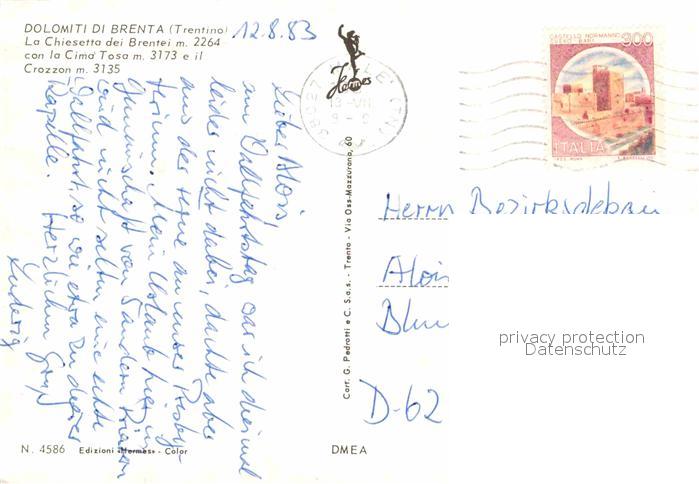 DOLOMITI DI BRENTA (Trentino)
La Chiesetta dei Brentei m. 2264
con la Cima Tosa m. 3173 e il
Crozzon m. 3135
12.8.83
Lieber Alois!
am Wallfahrtstag war ich diesmal
leider nicht dabei, dachte aber
aus der Ferne an unser
Mein Urlaub hier in
Gemeinschaft von
und nicht selten eine echte
Wallfahrt, so wie etwa zu dieser
Kapelle. Herzlichen Gruß
Ludwig
N. 4586 Edizioni «Hermes» - Color
Hermes
Cart. G. Pedrotti e C. S.a.s. - Trento - Via Oss-Mazzurana, 60
DMEA
CASTELLO NORMANNO
SVEVO BARI
300
ITALIA
Herrn
Alois
D-62
privacy protection
Datenschutz